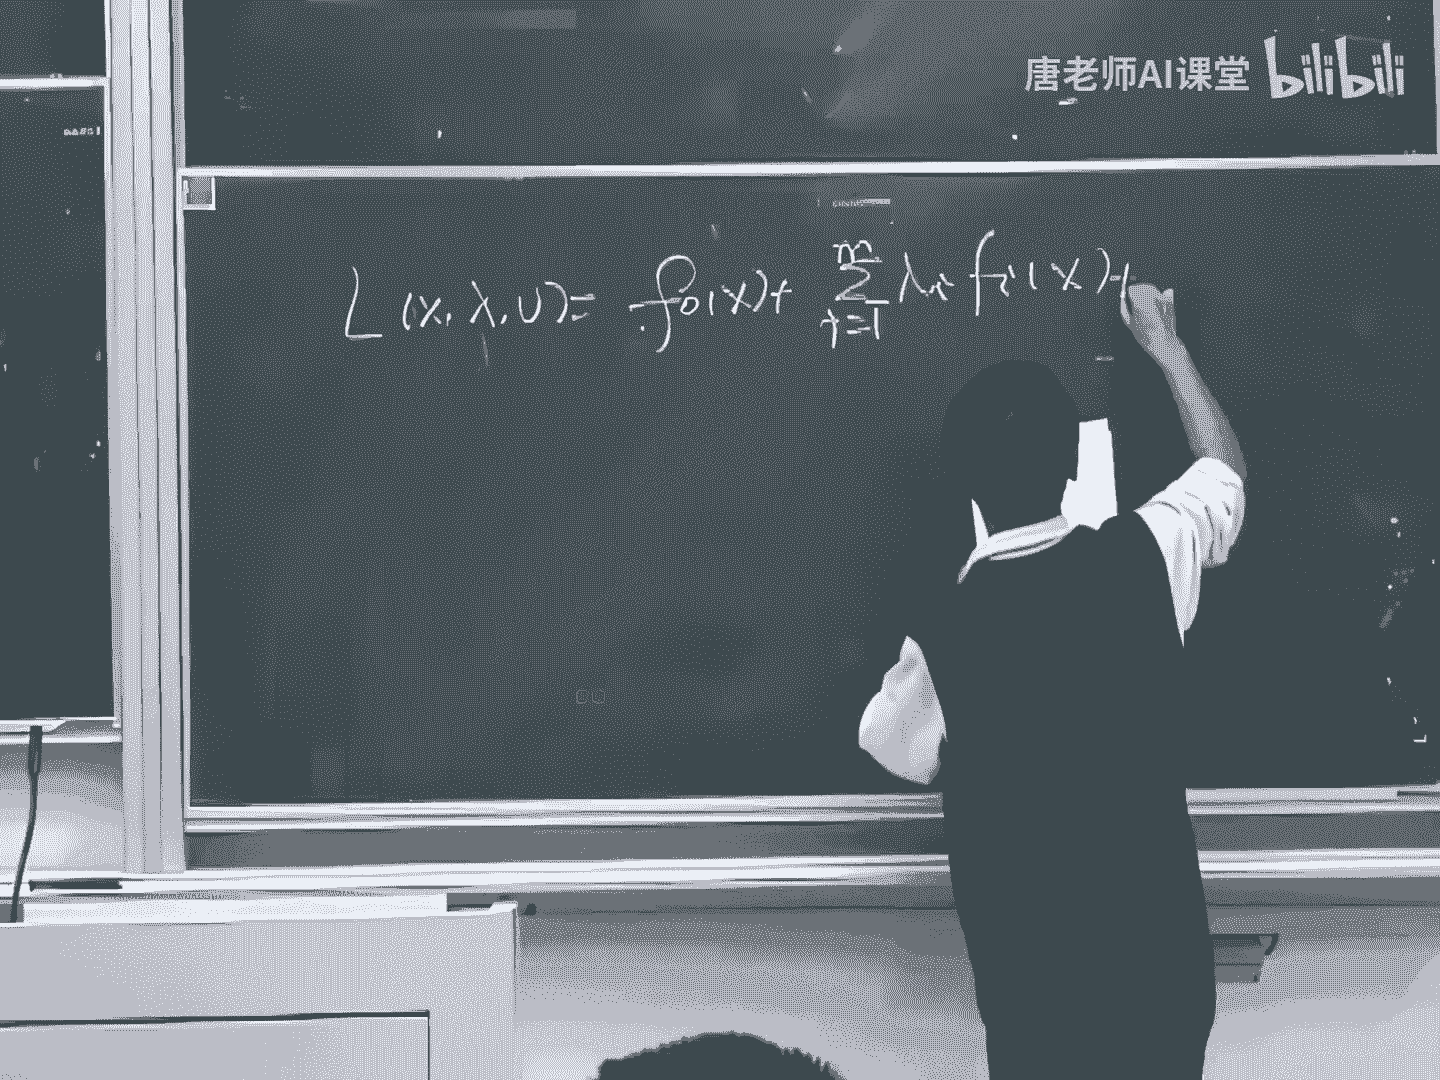 唐老师AI课堂 bilibili
L(x, λ, υ) = f₀(x) + ∑ᵢ₌₁ᵐ λᵢ fᵢ(x) +